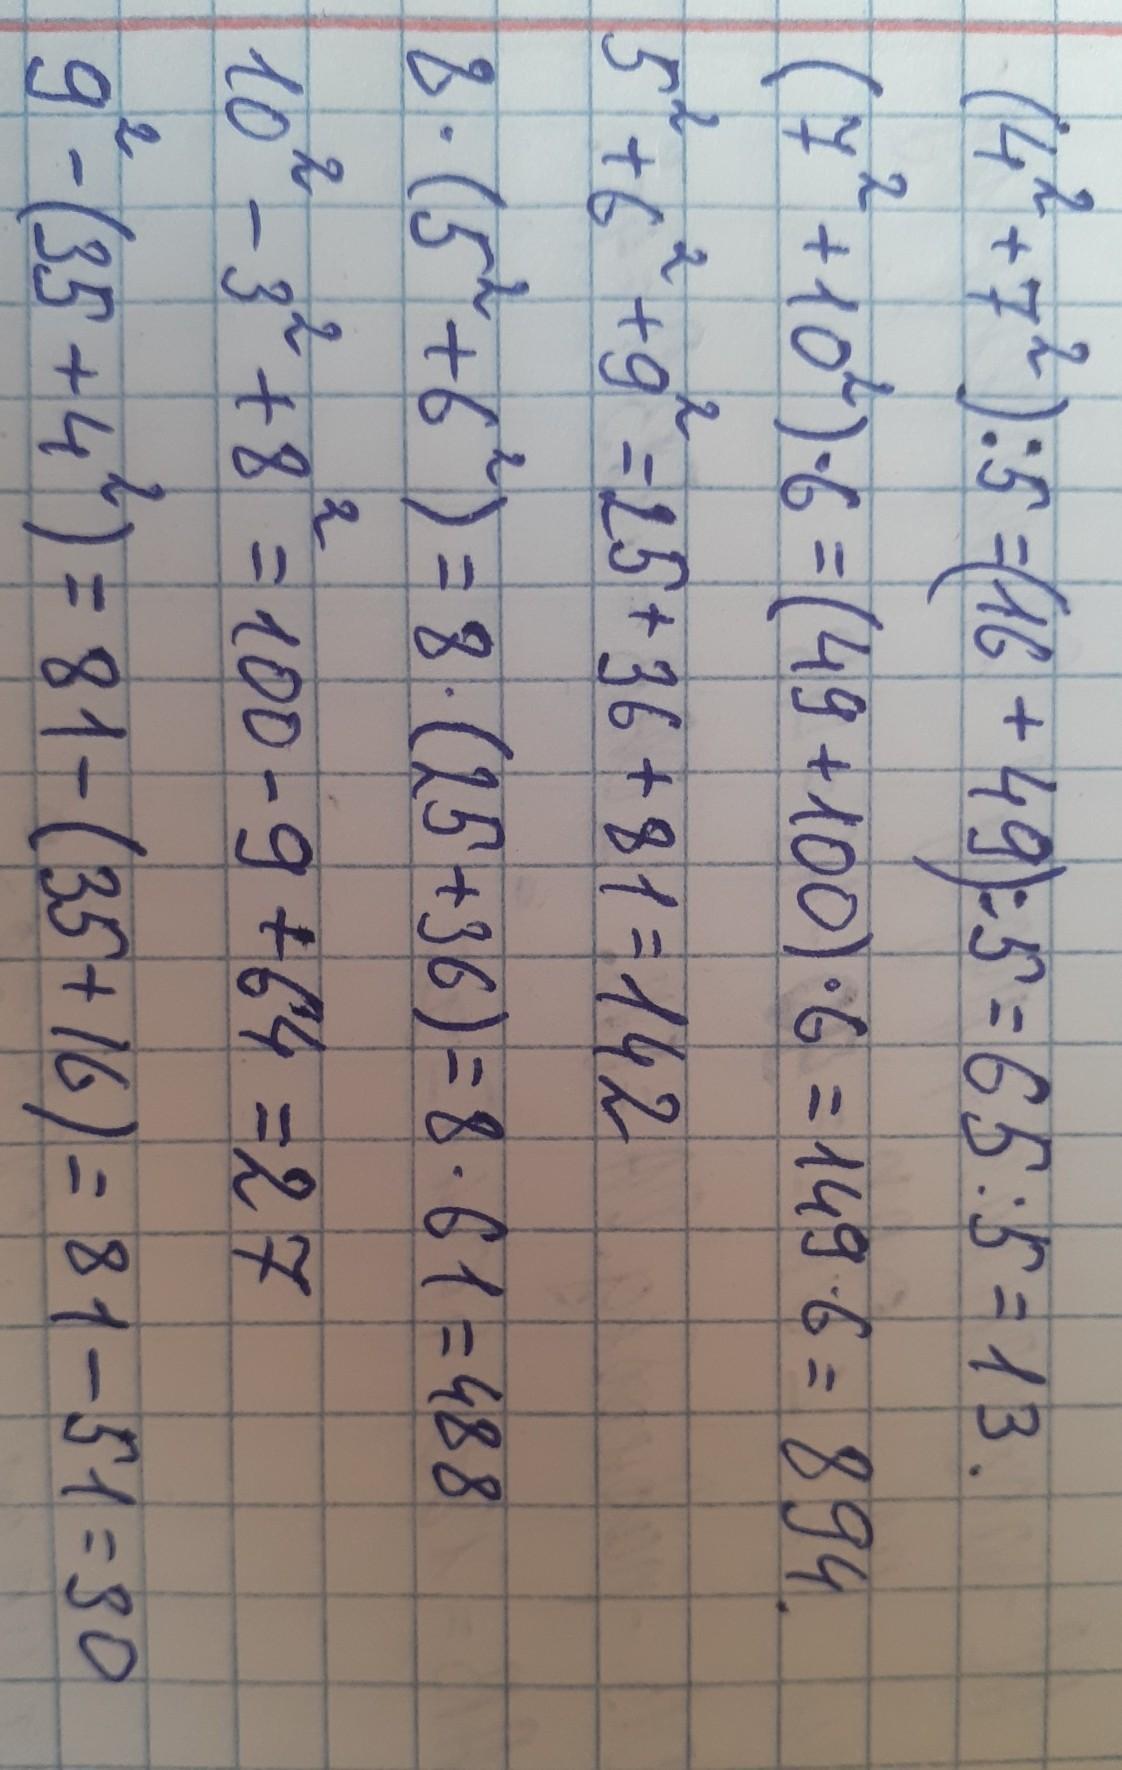 (4² + 7²) : 5 = (16 + 49) : 5 = 65 : 5 = 13.
(7² + 10²) · 6 = (49 + 100) · 6 = 149 · 6 = 894.
5² + 6² + 9² = 25 + 36 + 81 = 142
8 · (5² + 6²) = 8 · (25 + 36) = 8 · 61 = 488
10² - 3² + 8² = 100 - 9 + 64 = 27
9² - (35 + 4²) = 81 - (35 + 16) = 81 - 51 = 30